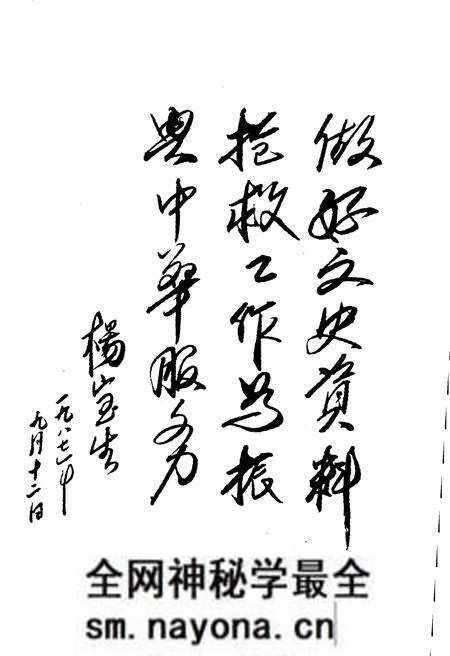 做好文史資料
抢救工作为振
興中華服务
楊
一九八七年
九月十二日
全网神秘学最全
sm.nayona.cn